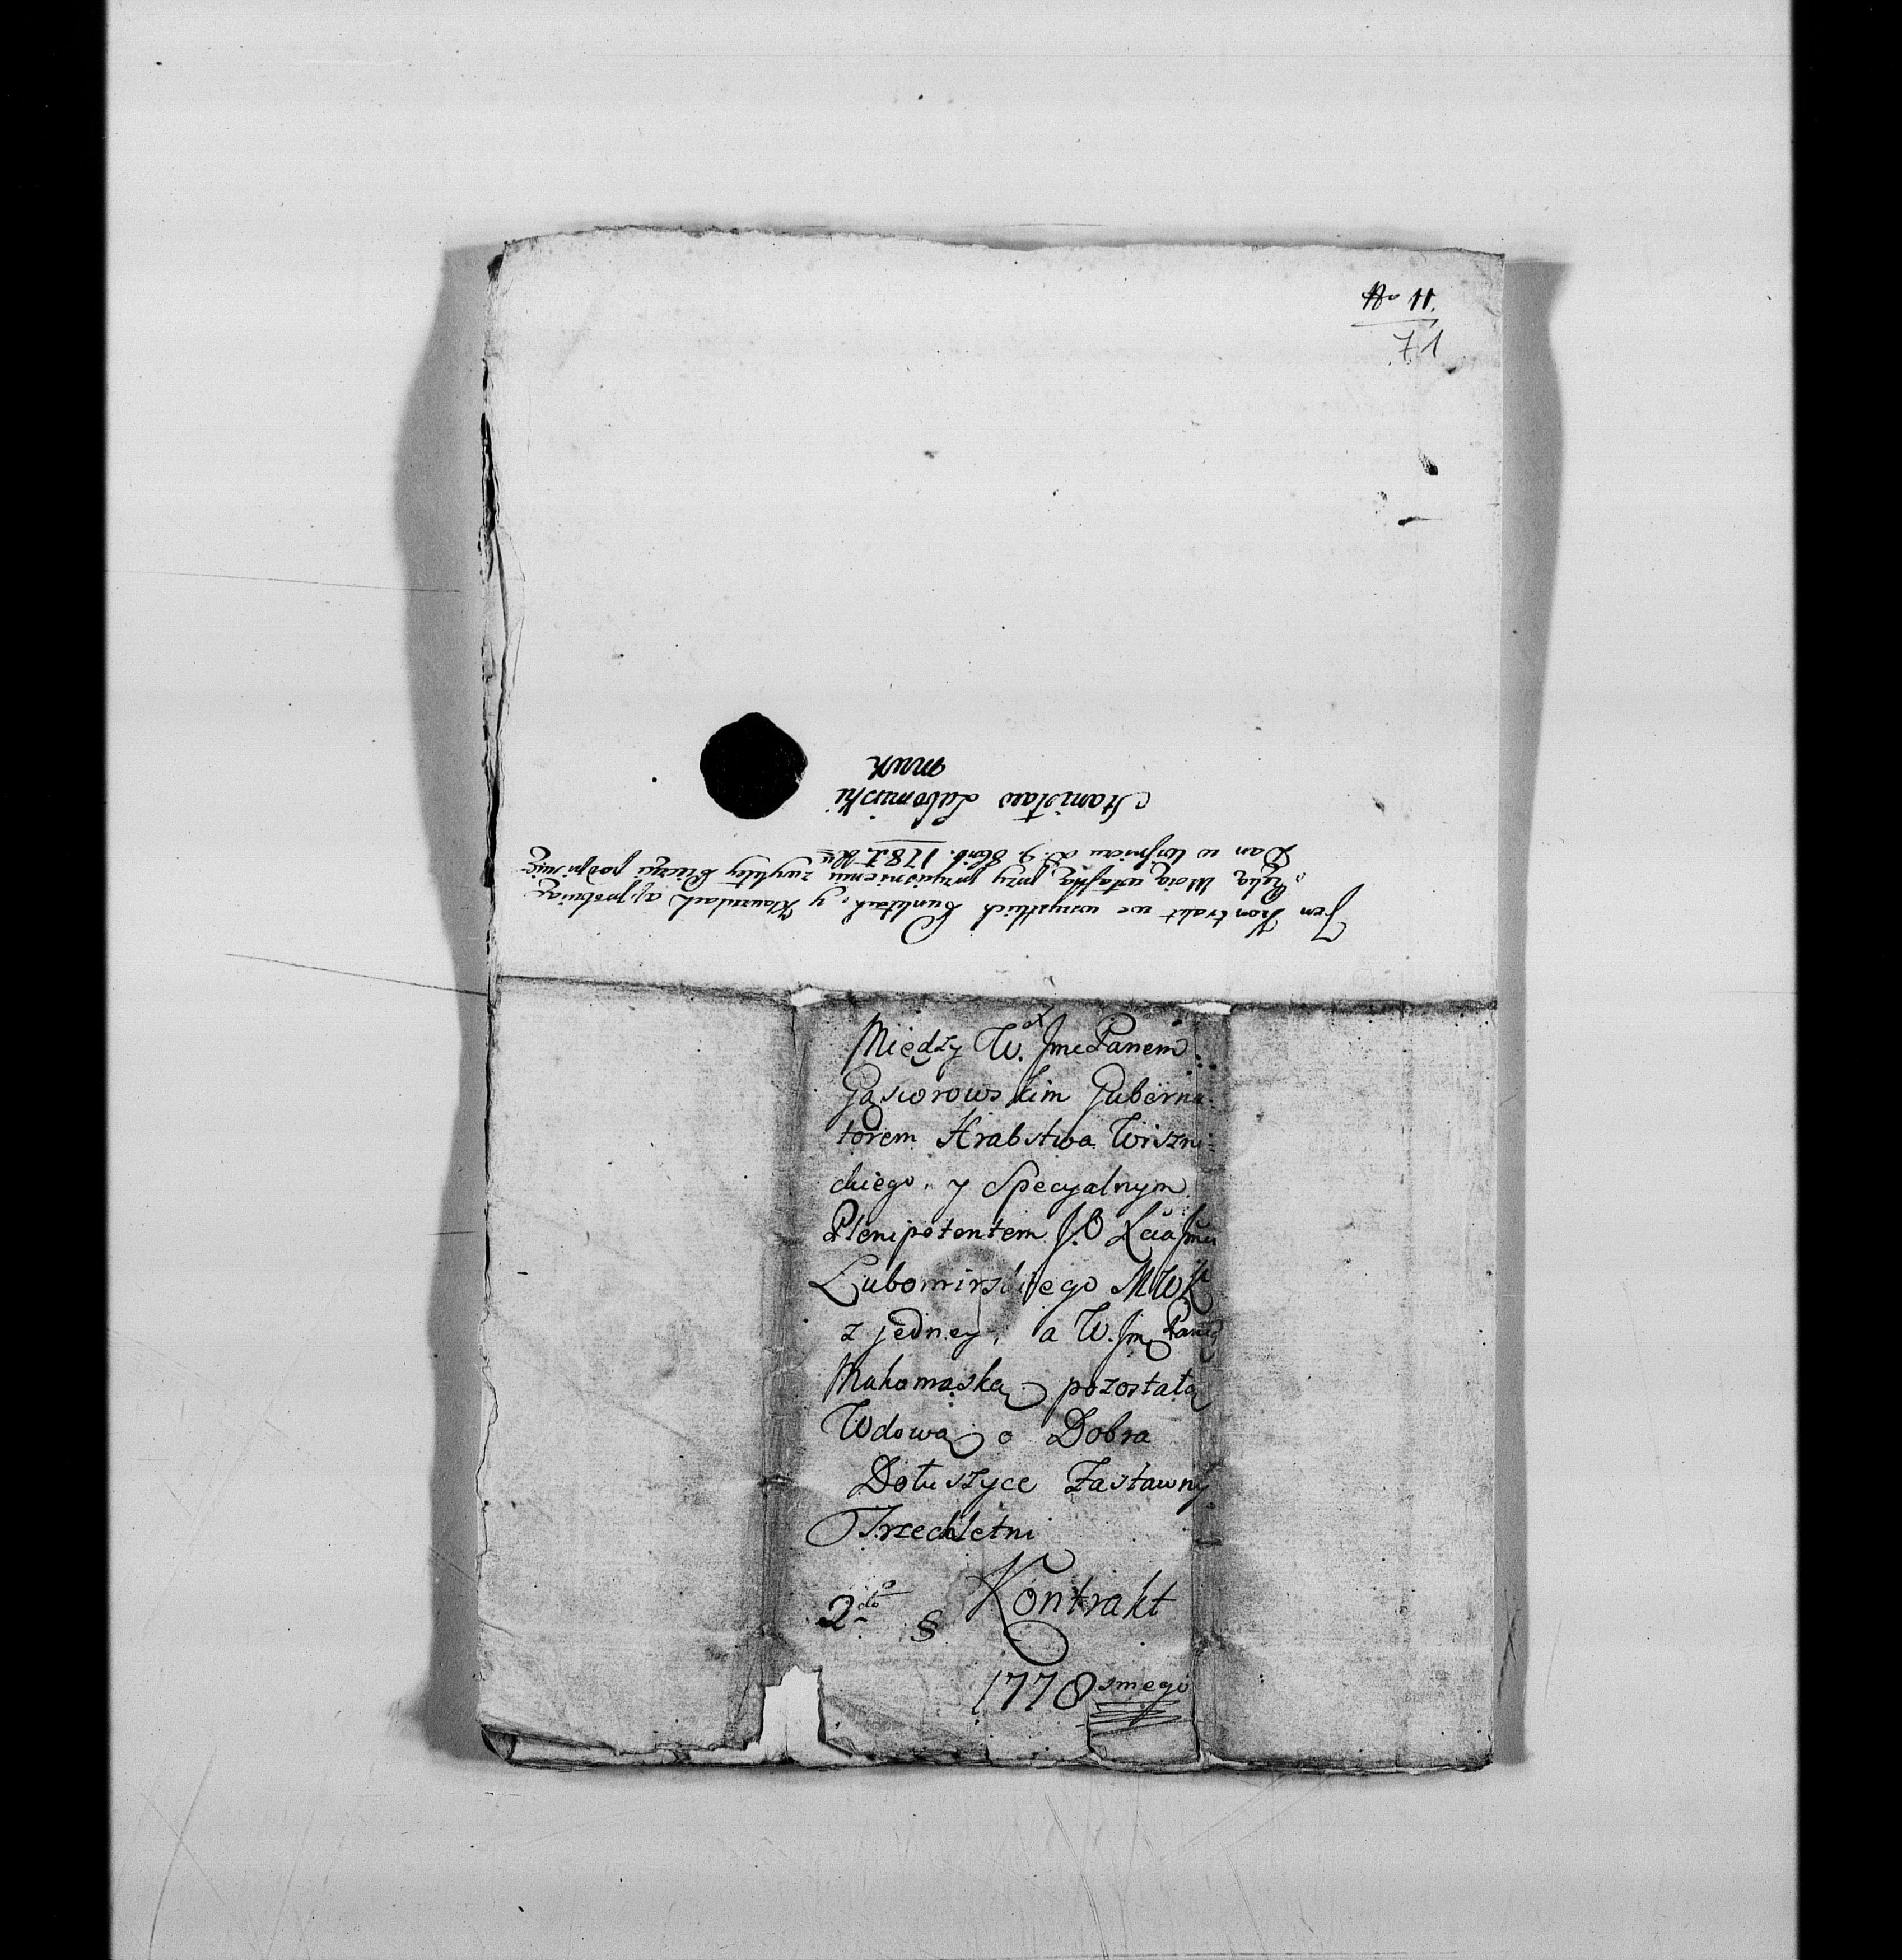 No 11.
71
Ten Kontrakt we wszystkich Punktach, y Klauzulach approbuiąc
Ręką Moią własną przy przyciśnieniu zwykłey Pieczęci podpisuię
Dan w Wiśniczu d. 9. 8brb. 1781. Ru
Stanisław Lubomirski
MWK
Między W. Jmć Panem
Gąsiorowskim Guberna-
torem Hrabstwa Wiszni-
ckiego, y Specyalnym
Plenipotentem J.O. Xcia Jmći
Lubomirskiego MWK
z jedney, a W. Jmć Panią
Makomaską pozostałą
Wdową o Dobra
Dołuszyce Zastawny
Trzechletni
Kontrakt
2do §
1778smego